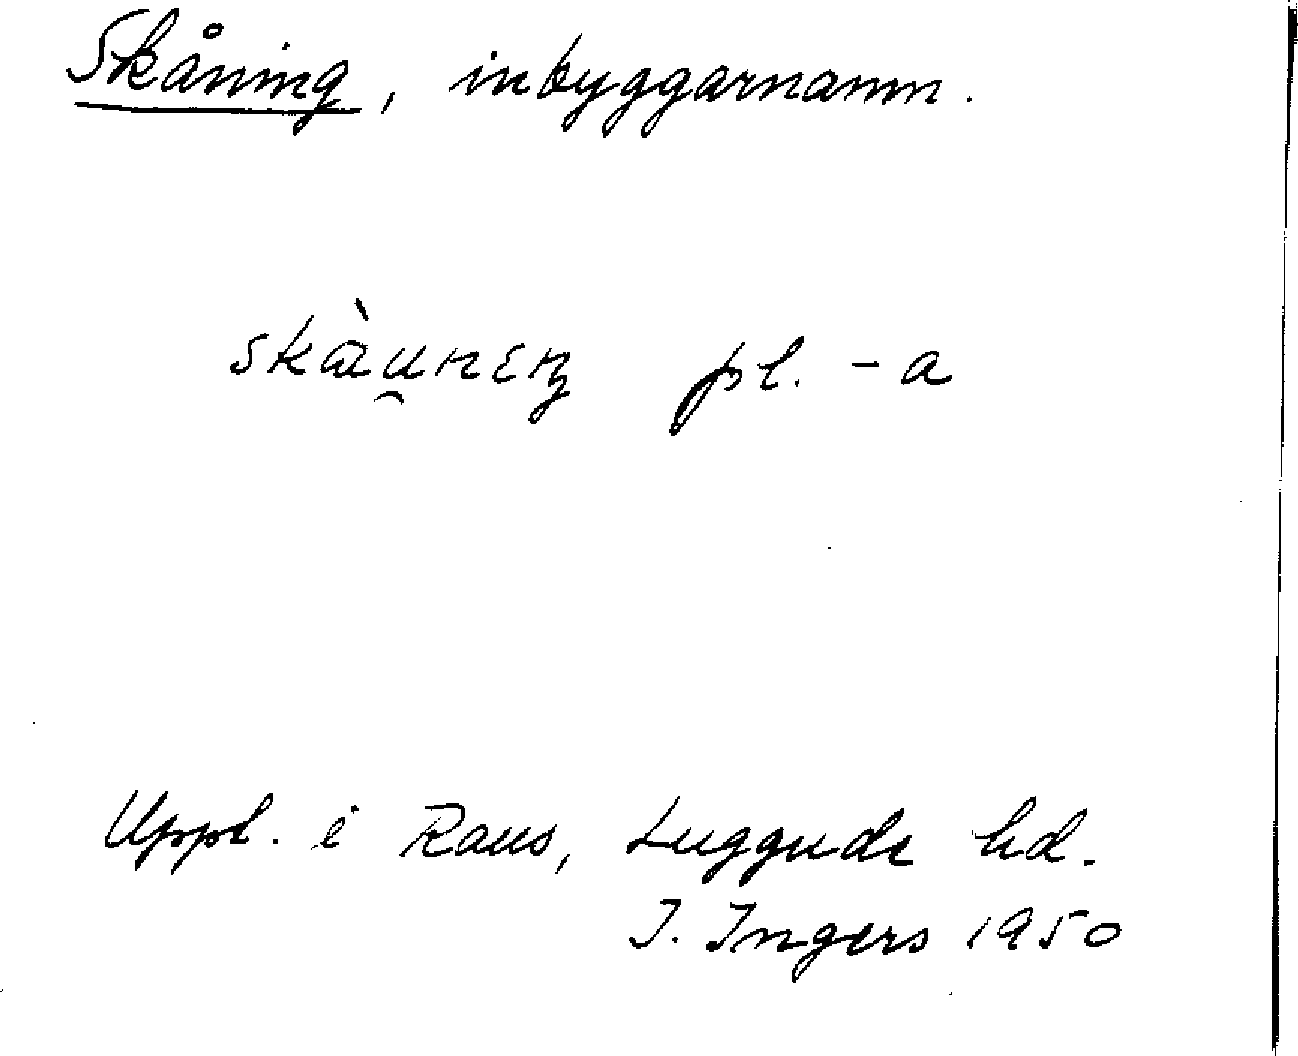 Skåning, inbyggarnamn.
skæ̀u̯nɛŋ pl. -a
Uppt. i Raus, Luggude hd.
I. Ingers 1950